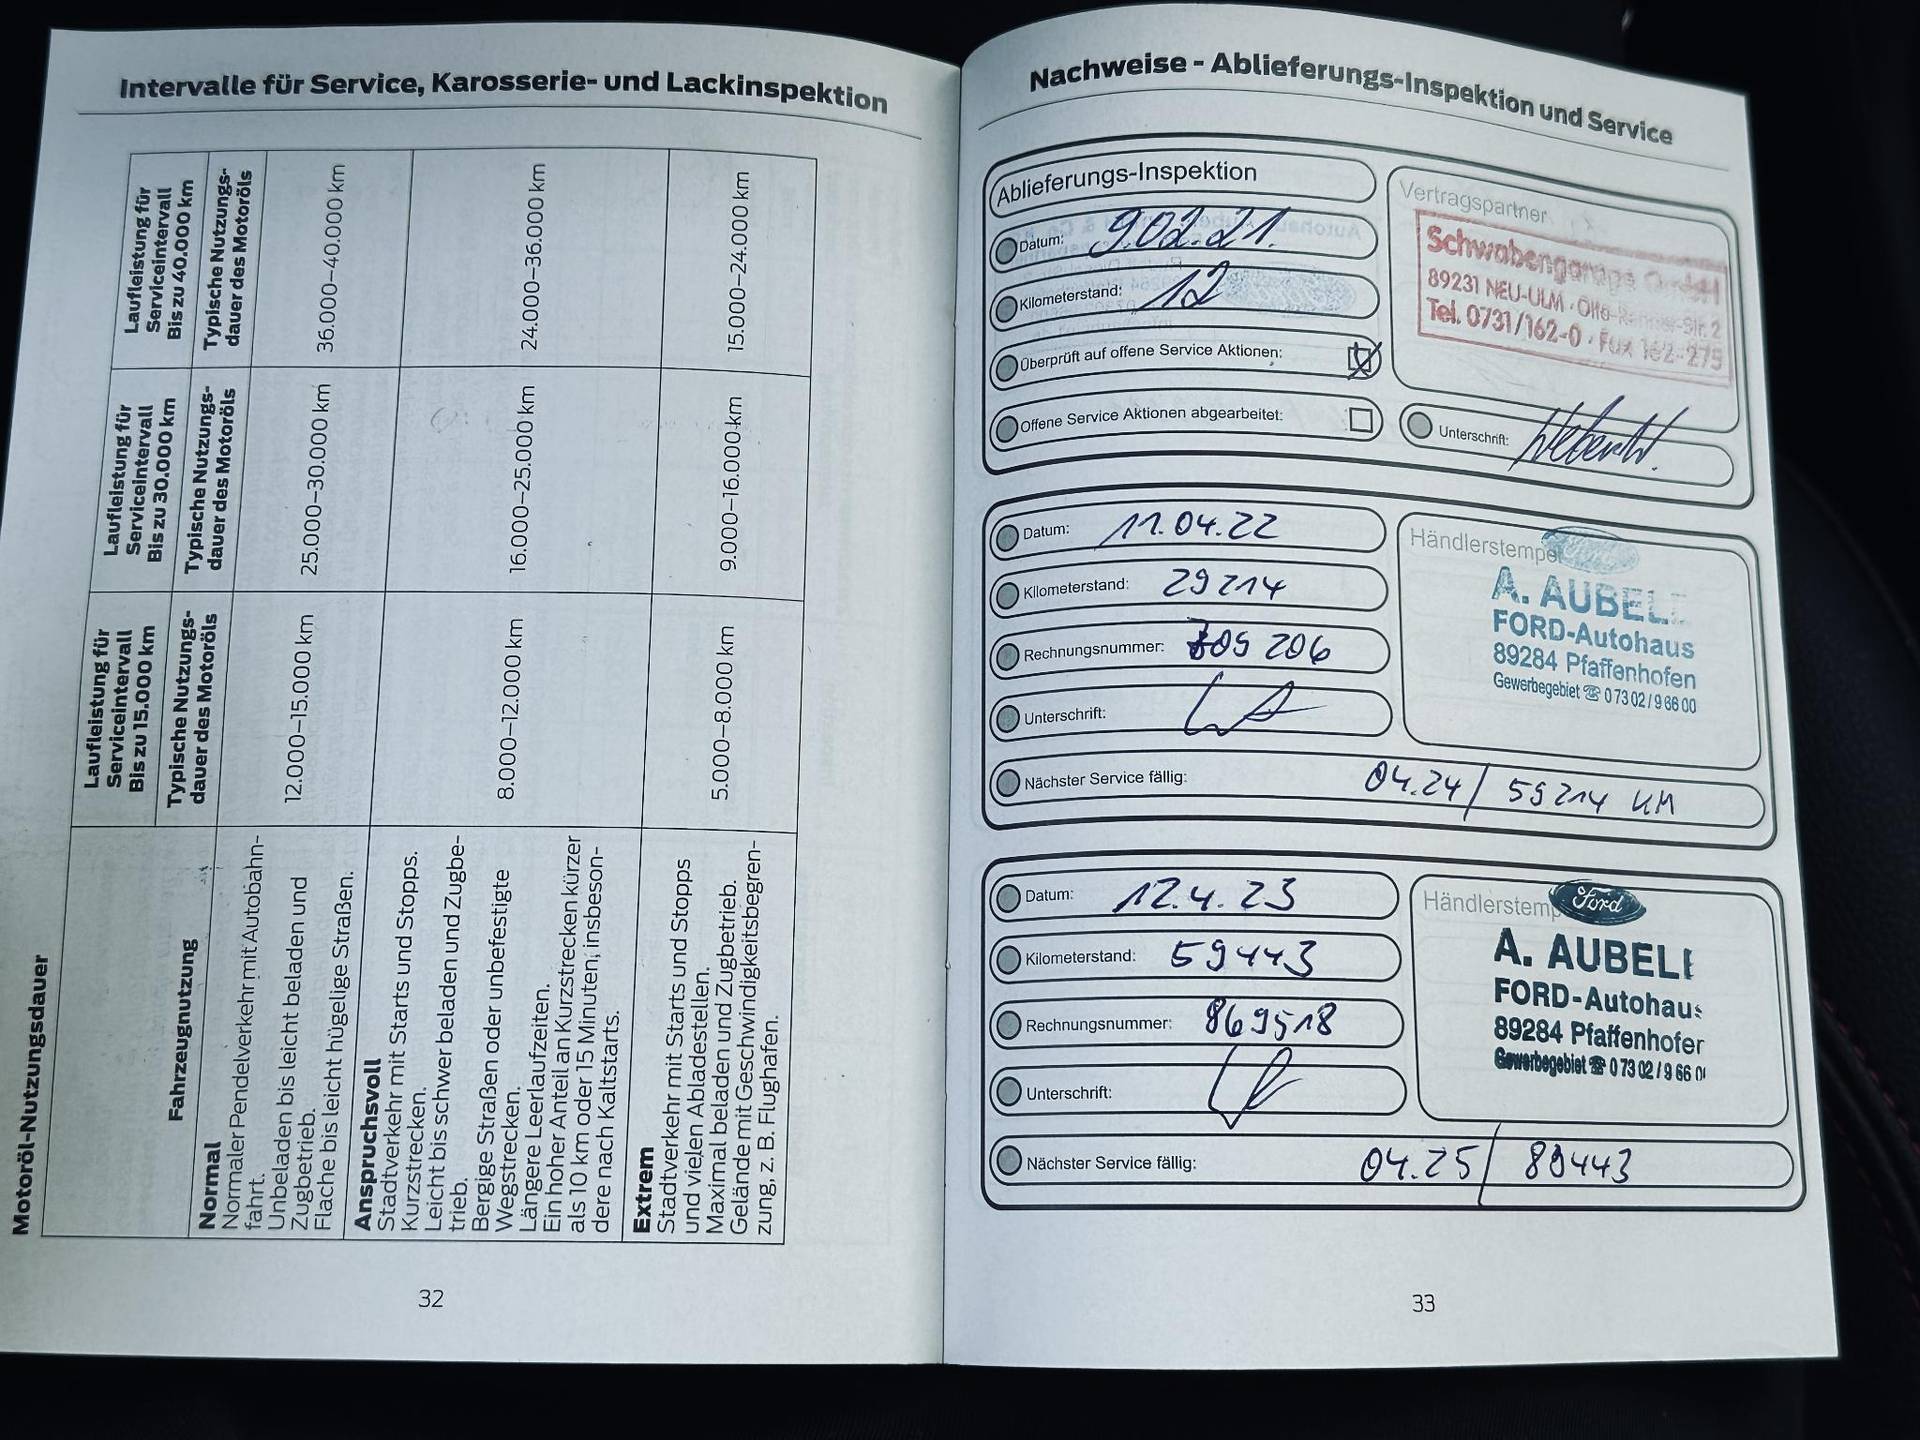 Intervalle für Service, Karosserie- und Lackinspektion
Motoröl-Nutzungsdauer
Fahrzeugnutzung
Laufleistung für
Serviceintervall
Bis zu 15.000 km
Laufleistung für
Serviceintervall
Bis zu 30.000 km
Laufleistung für
Serviceintervall
Bis zu 40.000 km
Typische Nutzungs-
dauer des Motoröls
Typische Nutzungs-
dauer des Motoröls
Typische Nutzungs-
dauer des Motoröls
Normal
Normaler Pendelverkehr mit Autobahn-
fahrt.
Unbeladen bis leicht beladen und
Zugbetrieb.
Flache bis leicht hügelige Straßen.
12.000–15.000 km
25.000–30.000 km
36.000–40.000 km
Anspruchsvoll
Stadtverkehr mit Starts und Stopps.
Kurzstrecken.
Leicht bis schwer beladen und Zugbe-
trieb.
Bergige Straßen oder unbefestigte
Wegstrecken.
Längere Leerlaufzeiten.
Ein hoher Anteil an Kurzstrecken kürzer
als 10 km oder 15 Minuten, insbeson-
dere nach Kaltstarts.
8.000–12.000 km
16.000–25.000 km
24.000–36.000 km
Extrem
Stadtverkehr mit Starts und Stopps
und vielen Abladestellen.
Maximal beladen und Zugbetrieb.
Gelände mit Geschwindigkeitsbegren-
zung, z. B. Flughafen.
5.000–8.000 km
9.000–16.000 km
15.000–24.000 km
32
Nachweise - Ablieferungs-Inspektion und Service
Ablieferungs-Inspektion
Datum: 9.02.21.
Kilometerstand: 12
Überprüft auf offene Service Aktionen:
Offene Service Aktionen abgearbeitet:
Vertragspartner
Schwabengarage GmbH
89231 NEU-ULM · Otto-Renner-Str. 2
Tel. 0731/162-0 · Fax 162-275
Unterschrift:
Datum: 11.04.22
Kilometerstand: 29214
Rechnungsnummer: 709 206
Unterschrift:
Nächster Service fällig: 04.24 / 59214 KM
Händlerstempel
Ford
A. AUBEL
FORD-Autohaus
89284 Pfaffenhofen
Gewerbegebiet ☎ 0 73 02 / 9 66 00
Datum: 12.4.23
Kilometerstand: 59443
Rechnungsnummer: 869518
Unterschrift:
Nächster Service fällig: 04.25 / 89443
Händlerstemp
Ford
A. AUBEL
FORD-Autohaus
89284 Pfaffenhofer
Gewerbegebiet ☎ 0 73 02 / 9 66 0
33